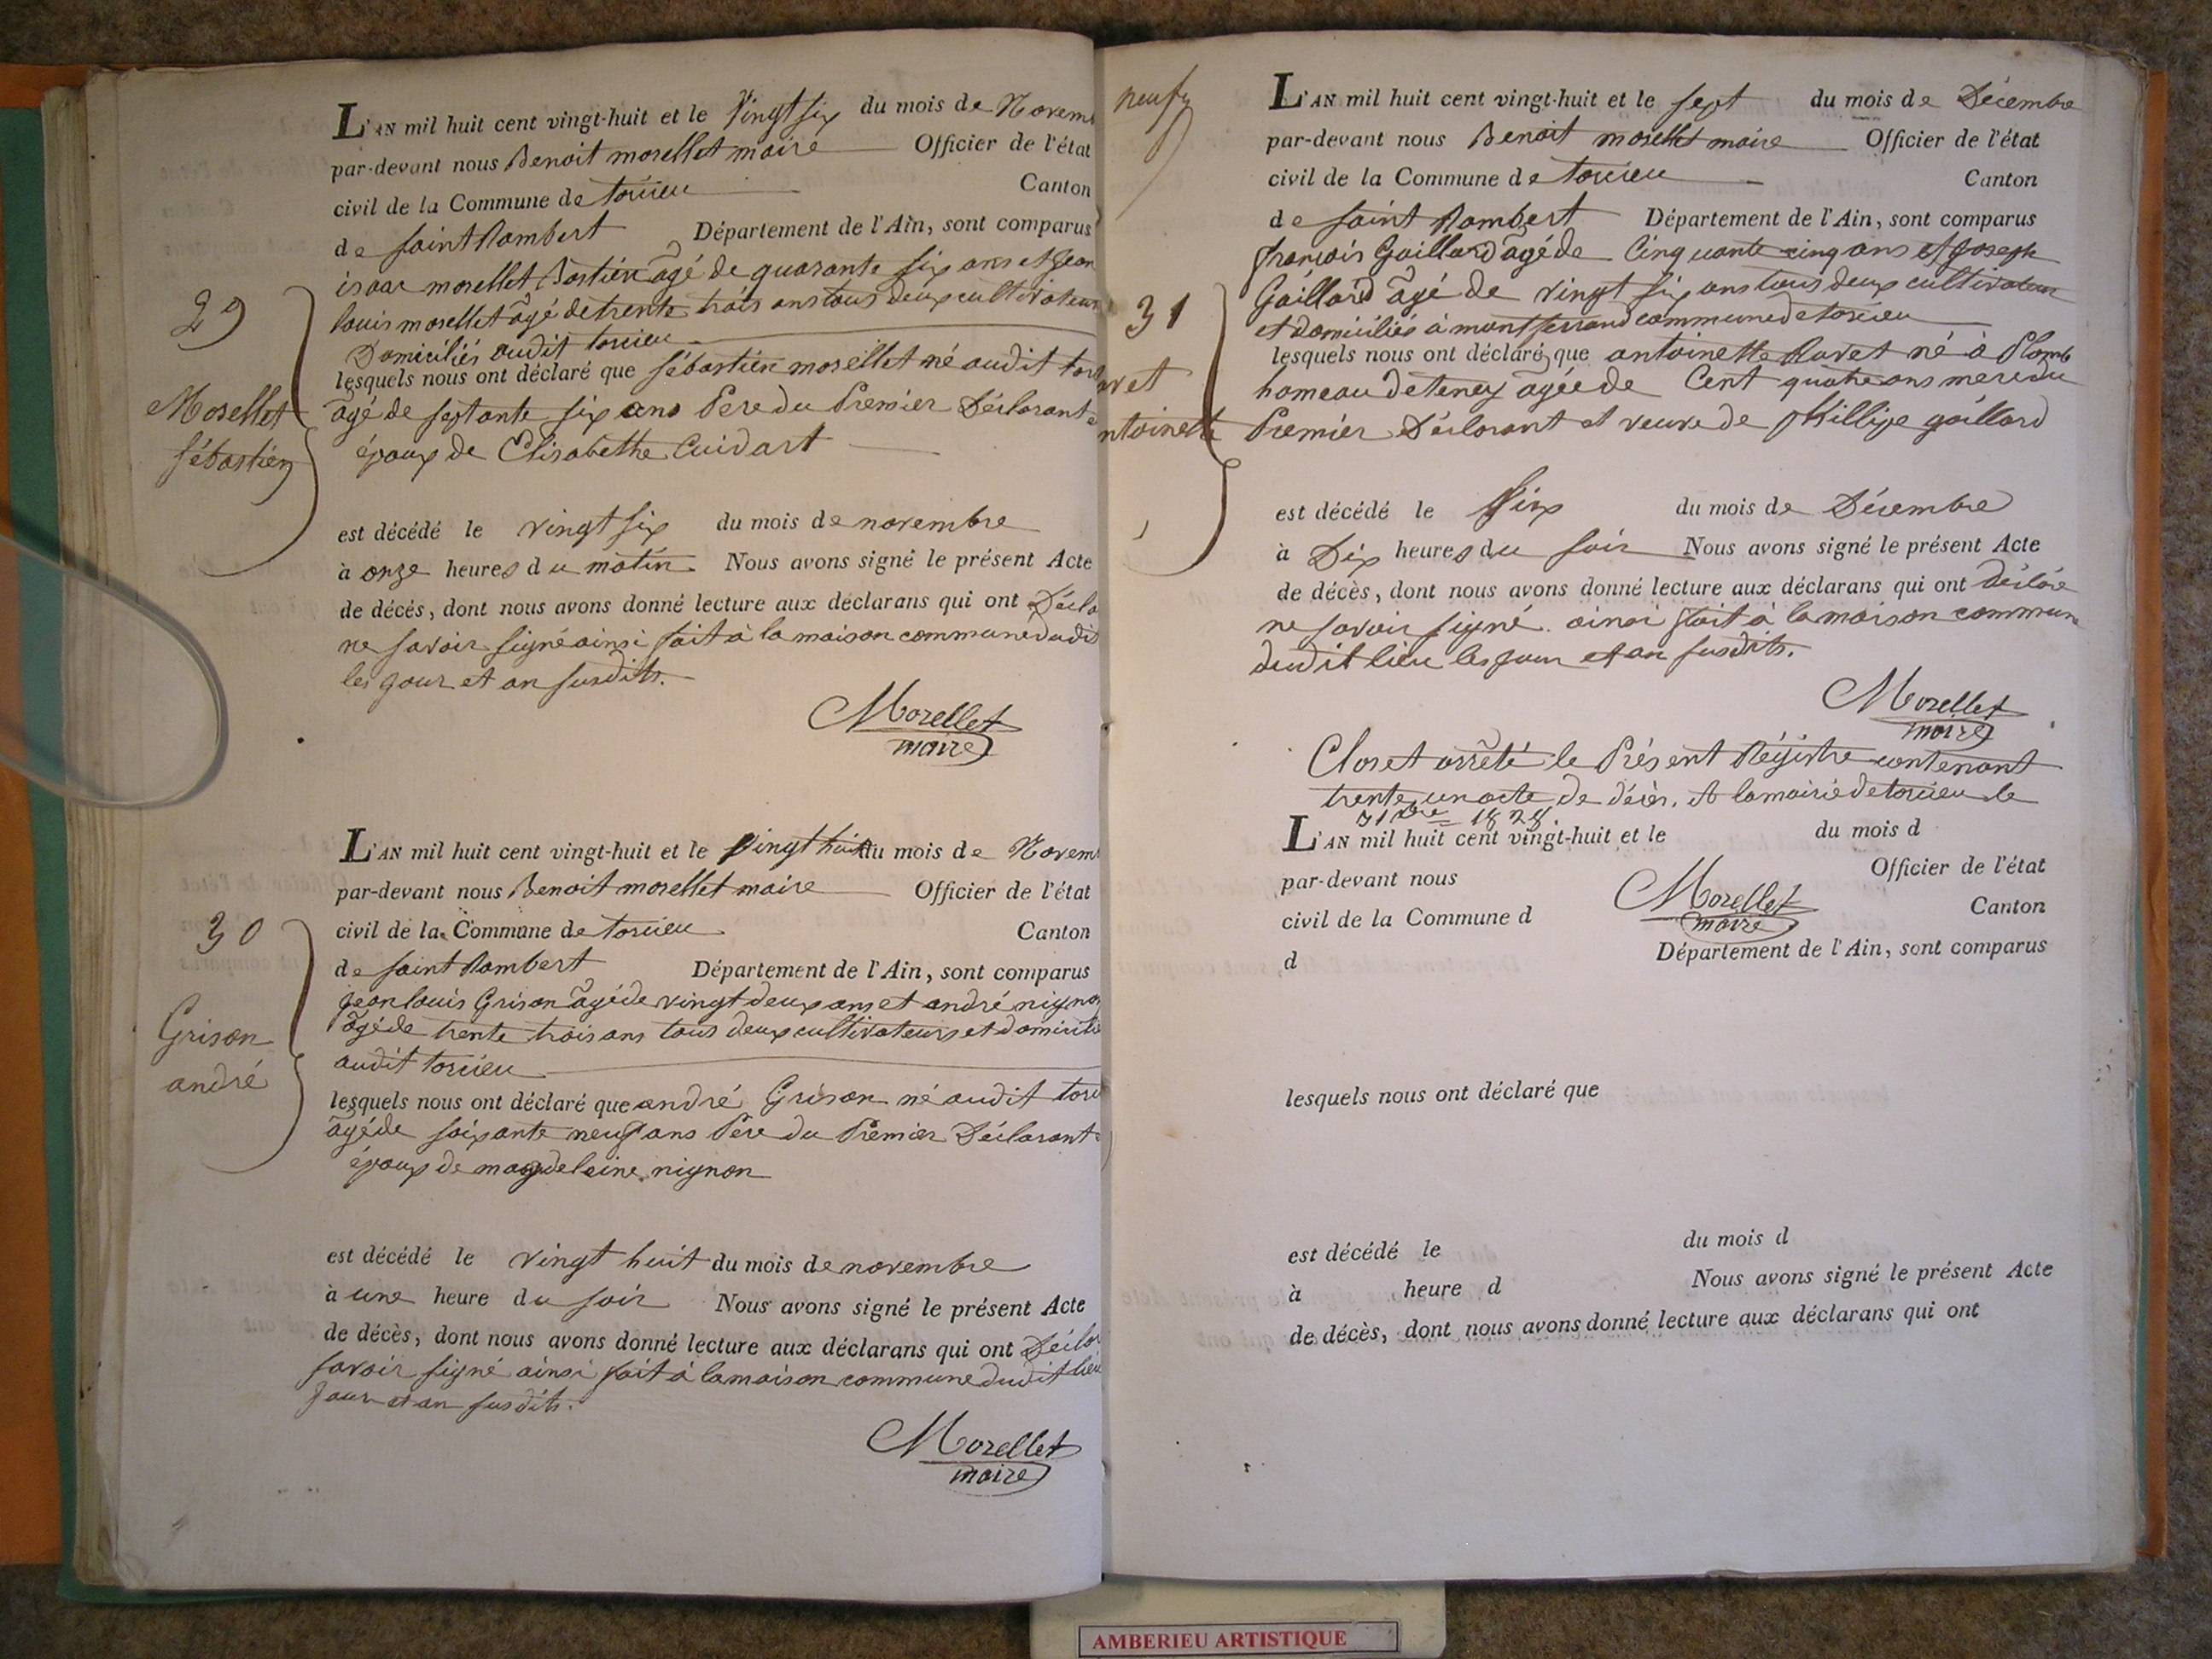 L'AN mil huit cent vingt-huit et le Vingt six du mois de Novem
par-devant nous Benoit morellet maire Officier de l'état
civil de la Commune de torcieu Canton
de saint Rambert Département de l'Ain, sont comparus
isaac morellet Bastien âgé de quarante six ans et Jean
louis morellet âgé de trente trois ans tous deux cultivateurs
Domiciliés audit torcieu
lesquels nous ont déclaré que sébastien morellet né audit torc
âgé de septante six ans Pere du Premier Déclarant
époux de Elisabethe Cuidart
est décédé le vingt six du mois de novembre
à onze heures du matin Nous avons signé le présent Acte
de décès, dont nous avons donné lecture aux déclarans qui ont Décla
ne savoir signé ainsi fait à la maison commune dudit
les jour et an susdits.
Morellet
maire
29
Morellet
sébastien
L'AN mil huit cent vingt-huit et le Vingt huit du mois de Novem
par-devant nous Benoit morellet maire Officier de l'état
civil de la Commune de torcieu Canton
de saint Rambert Département de l'Ain, sont comparus
jean louis Grison âgé de vingt deux ans et andré nignon
âgé de trente trois ans tous deux cultivateurs et domicilié
audit torcieu
lesquels nous ont déclaré que andré Grison né audit torci
âgé de soixante neuf ans Père du Premier Déclarant
époux de magdeleine nignon
est décédé le vingt huit du mois de novembre
à une heure du soir Nous avons signé le présent Acte
de décès, dont nous avons donné lecture aux déclarans qui ont Décla
savoir signé ainsi fait à la maison commune dudit lieu
jour et an susdits.
Morellet
maire
30
Grison
andré
neuf
L'AN mil huit cent vingt-huit et le sept du mois de Décembre
par-devant nous Benoit morellet maire Officier de l'état
civil de la Commune de torcieu Canton
de saint Rambert Département de l'Ain, sont comparus
françois Gaillard âgé de Cinquante cinq ans et Joseph
Gaillard âgé de vingt six ans tous deux cultivateur
et domiciliés à montferrand commune de torcieu
lesquels nous ont déclaré que antoinette Ravet né à Plomb
hameau de tenay âgée de Cent quatre ans mere du
Premier Déclarant et veuve de phillipe gaillard
est décédé le six du mois de Décembre
à Dix heures du soir Nous avons signé le présent Acte
de décès, dont nous avons donné lecture aux déclarans qui ont déclaré
ne savoir signé ainsi fait à la maison commun
dudit lieu les jour et an susdits.
Morellet
maire
31
avet
ntoinette
Clos et arrêté le Présent Régistre contenant
trente un acte de décès. A la mairie de torcieu le
31 Xbre 1828.
L'AN mil huit cent vingt-huit et le du mois d
par-devant nous Officier de l'état
civil de la Commune d Canton
Morellet
maire
d Département de l'Ain, sont comparus
lesquels nous ont déclaré que
est décédé le du mois d
à heure d Nous avons signé le présent Acte
de décès, dont nous avons donné lecture aux déclarans qui ont
AMBERIEU ARTISTIQUE